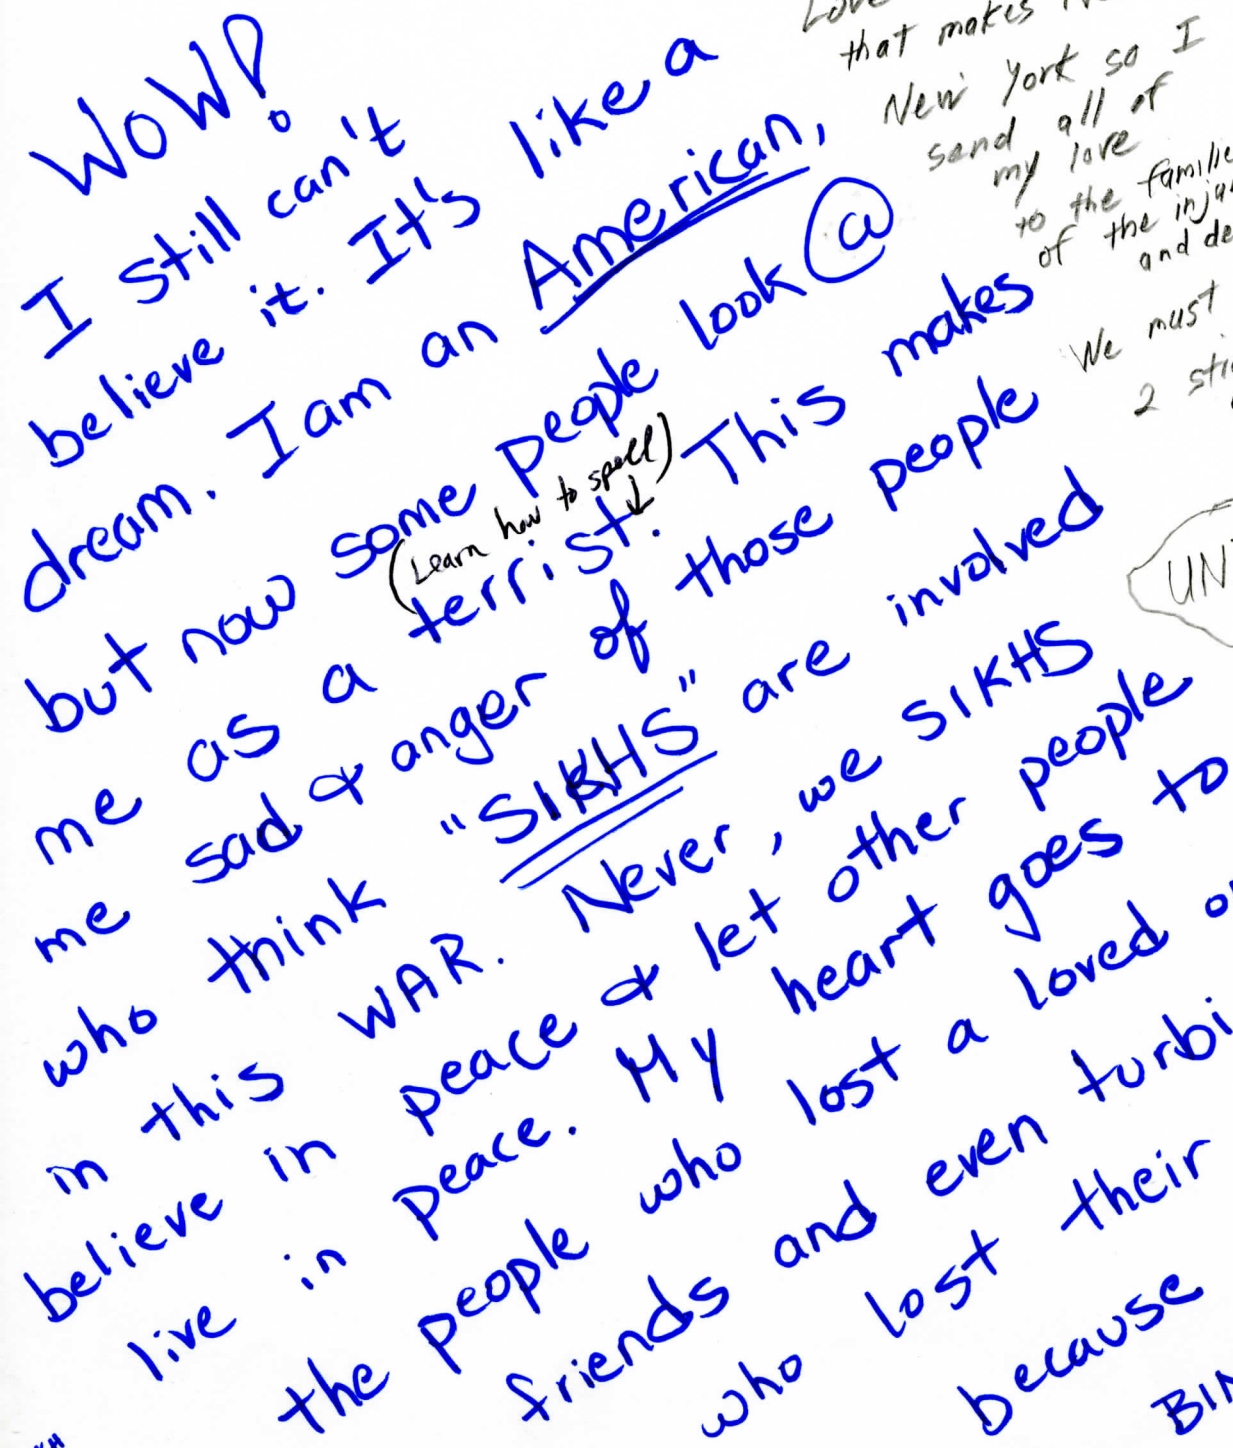 WOW!
I still can't
believe it. It's like a
dream. I am an American,
but now some people look @
(Learn how to spell)
me as a terrist. This makes
me sad & anger of those people
who think "SIKHS" are involved
in this WAR. Never, we SIKHS
believe in peace & let other people
live in peace. My heart goes to
the people who lost a loved
friends and even
who lost their
because
that makes
New York so I
send all of
my love
to the
of the
and
We must
2